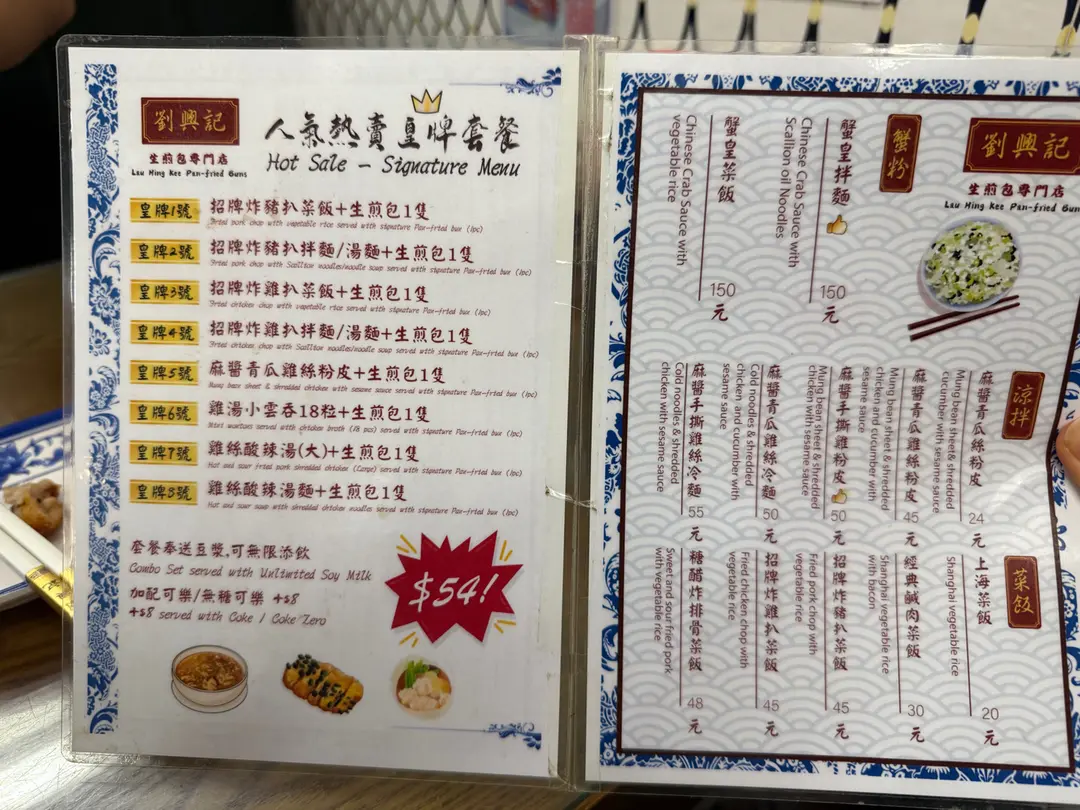 劉興記
生煎包專門店
Lau Hing Kee Pan-fried Buns
人氣熱賣皇牌套餐
Hot Sale - Signature Menu
皇牌1號 招牌炸豬扒菜飯+生煎包1隻
Fried pork chop with vegetable rice served with signature Pan-fried bun (1pc)
皇牌2號 招牌炸豬扒拌麵/湯麵+生煎包1隻
Fried pork chop with Scallion noodles/noodle soup served with signature Pan-fried bun (1pc)
皇牌3號 招牌炸雞扒菜飯+生煎包1隻
Fried chicken chop with vegetable rice served with signature Pan-fried bun (1pc)
皇牌4號 招牌炸雞扒拌麵/湯麵+生煎包1隻
Fried chicken chop with Scallion noodles/noodle soup served with signature Pan-fried bun (1pc)
皇牌5號 麻醬青瓜雞絲粉皮+生煎包1隻
Mung bean sheet & shredded chicken with sesame sauce served with signature Pan-fried bun (1pc)
皇牌6號 雞湯小雲吞18粒+生煎包1隻
Mini wontons served with chicken broth (18 pcs) served with signature Pan-fried bun (1pc)
皇牌7號 雞絲酸辣湯(大)+生煎包1隻
Hot and sour fried pork shredded chicken (Large) served with signature Pan-fried bun (1pc)
皇牌8號 雞絲酸辣湯麵+生煎包1隻
Hot and sour soup with shredded chicken noodles served with signature Pan-fried bun (1pc)
套餐奉送豆漿,可無限添飲
Combo Set served with Unlimited Soy Milk
加配可樂/無糖可樂 +$8
+$8 served with Coke / Coke Zero
$54!
劉興記
生煎包專門店
Lau Hing Kee Pan-fried Buns
蟹粉
蟹皇拌麵
Chinese Crab Sauce with
Scallion oil Noodles
150元
蟹皇菜飯
Chinese Crab Sauce with
vegetable rice
150元
涼拌
麻醬青瓜絲粉皮
Mung bean sheet&shredded
cucumber with sesame sauce
24元
麻醬青瓜雞絲粉皮
Mung bean sheet & shredded
chicken and cucumber with
sesame sauce
45元
麻醬手撕雞粉皮
Mung bean sheet & shredded
chicken with sesame sauce
50元
麻醬青瓜雞絲冷麵
Cold noodles & shredded
chicken and cucumber with
sesame sauce
50元
麻醬手撕雞絲冷麵
Cold noodles & shredded
chicken with sesame sauce
55元
菜飯
上海菜飯
Shanghai vegetable rice
20元
經典鹹肉菜飯
Shanghai vegetable rice
with bacon
30元
招牌炸豬扒菜飯
Fried pork chop with
vegetable rice
45元
招牌炸雞扒菜飯
Fried chicken chop with
vegetable rice
45元
糖醋炸排骨菜飯
Sweet and sour fried pork
with vegetable rice
48元